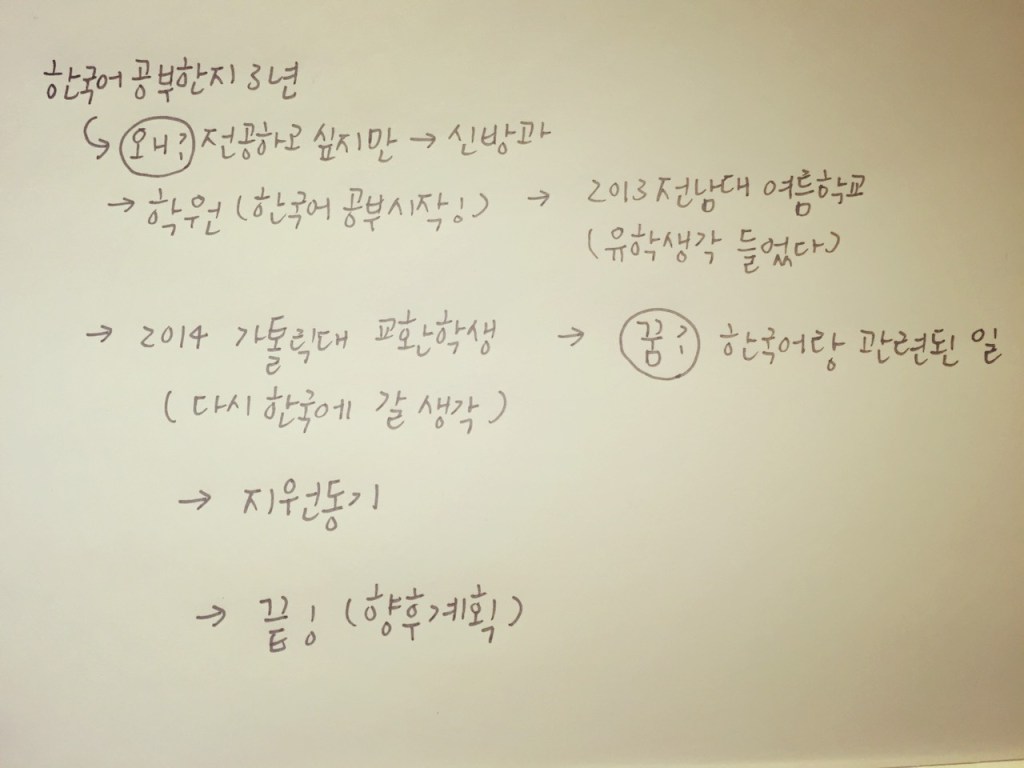 한국어 공부한지 3년
왜? 전공하고 싶지만 → 신방과
→ 학원 (한국어 공부시작!) → 2013 전남대 여름학교
(유학생각 들었다)
→ 2014 가톨릭대 교환학생 → 꿈? 한국어랑 관련된 일
(다시 한국에 갈 생각)
→ 지원동기
→ 끝! (향후계획)